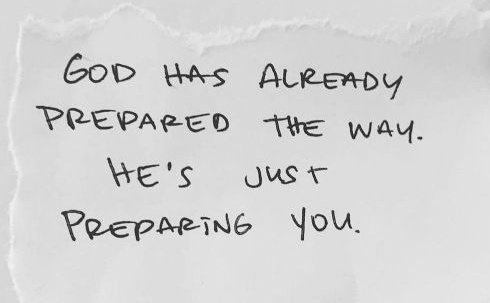 GOD HAS ALREADY
PREPARED THE WAY.
HE'S JUST
PREPARING YOU.